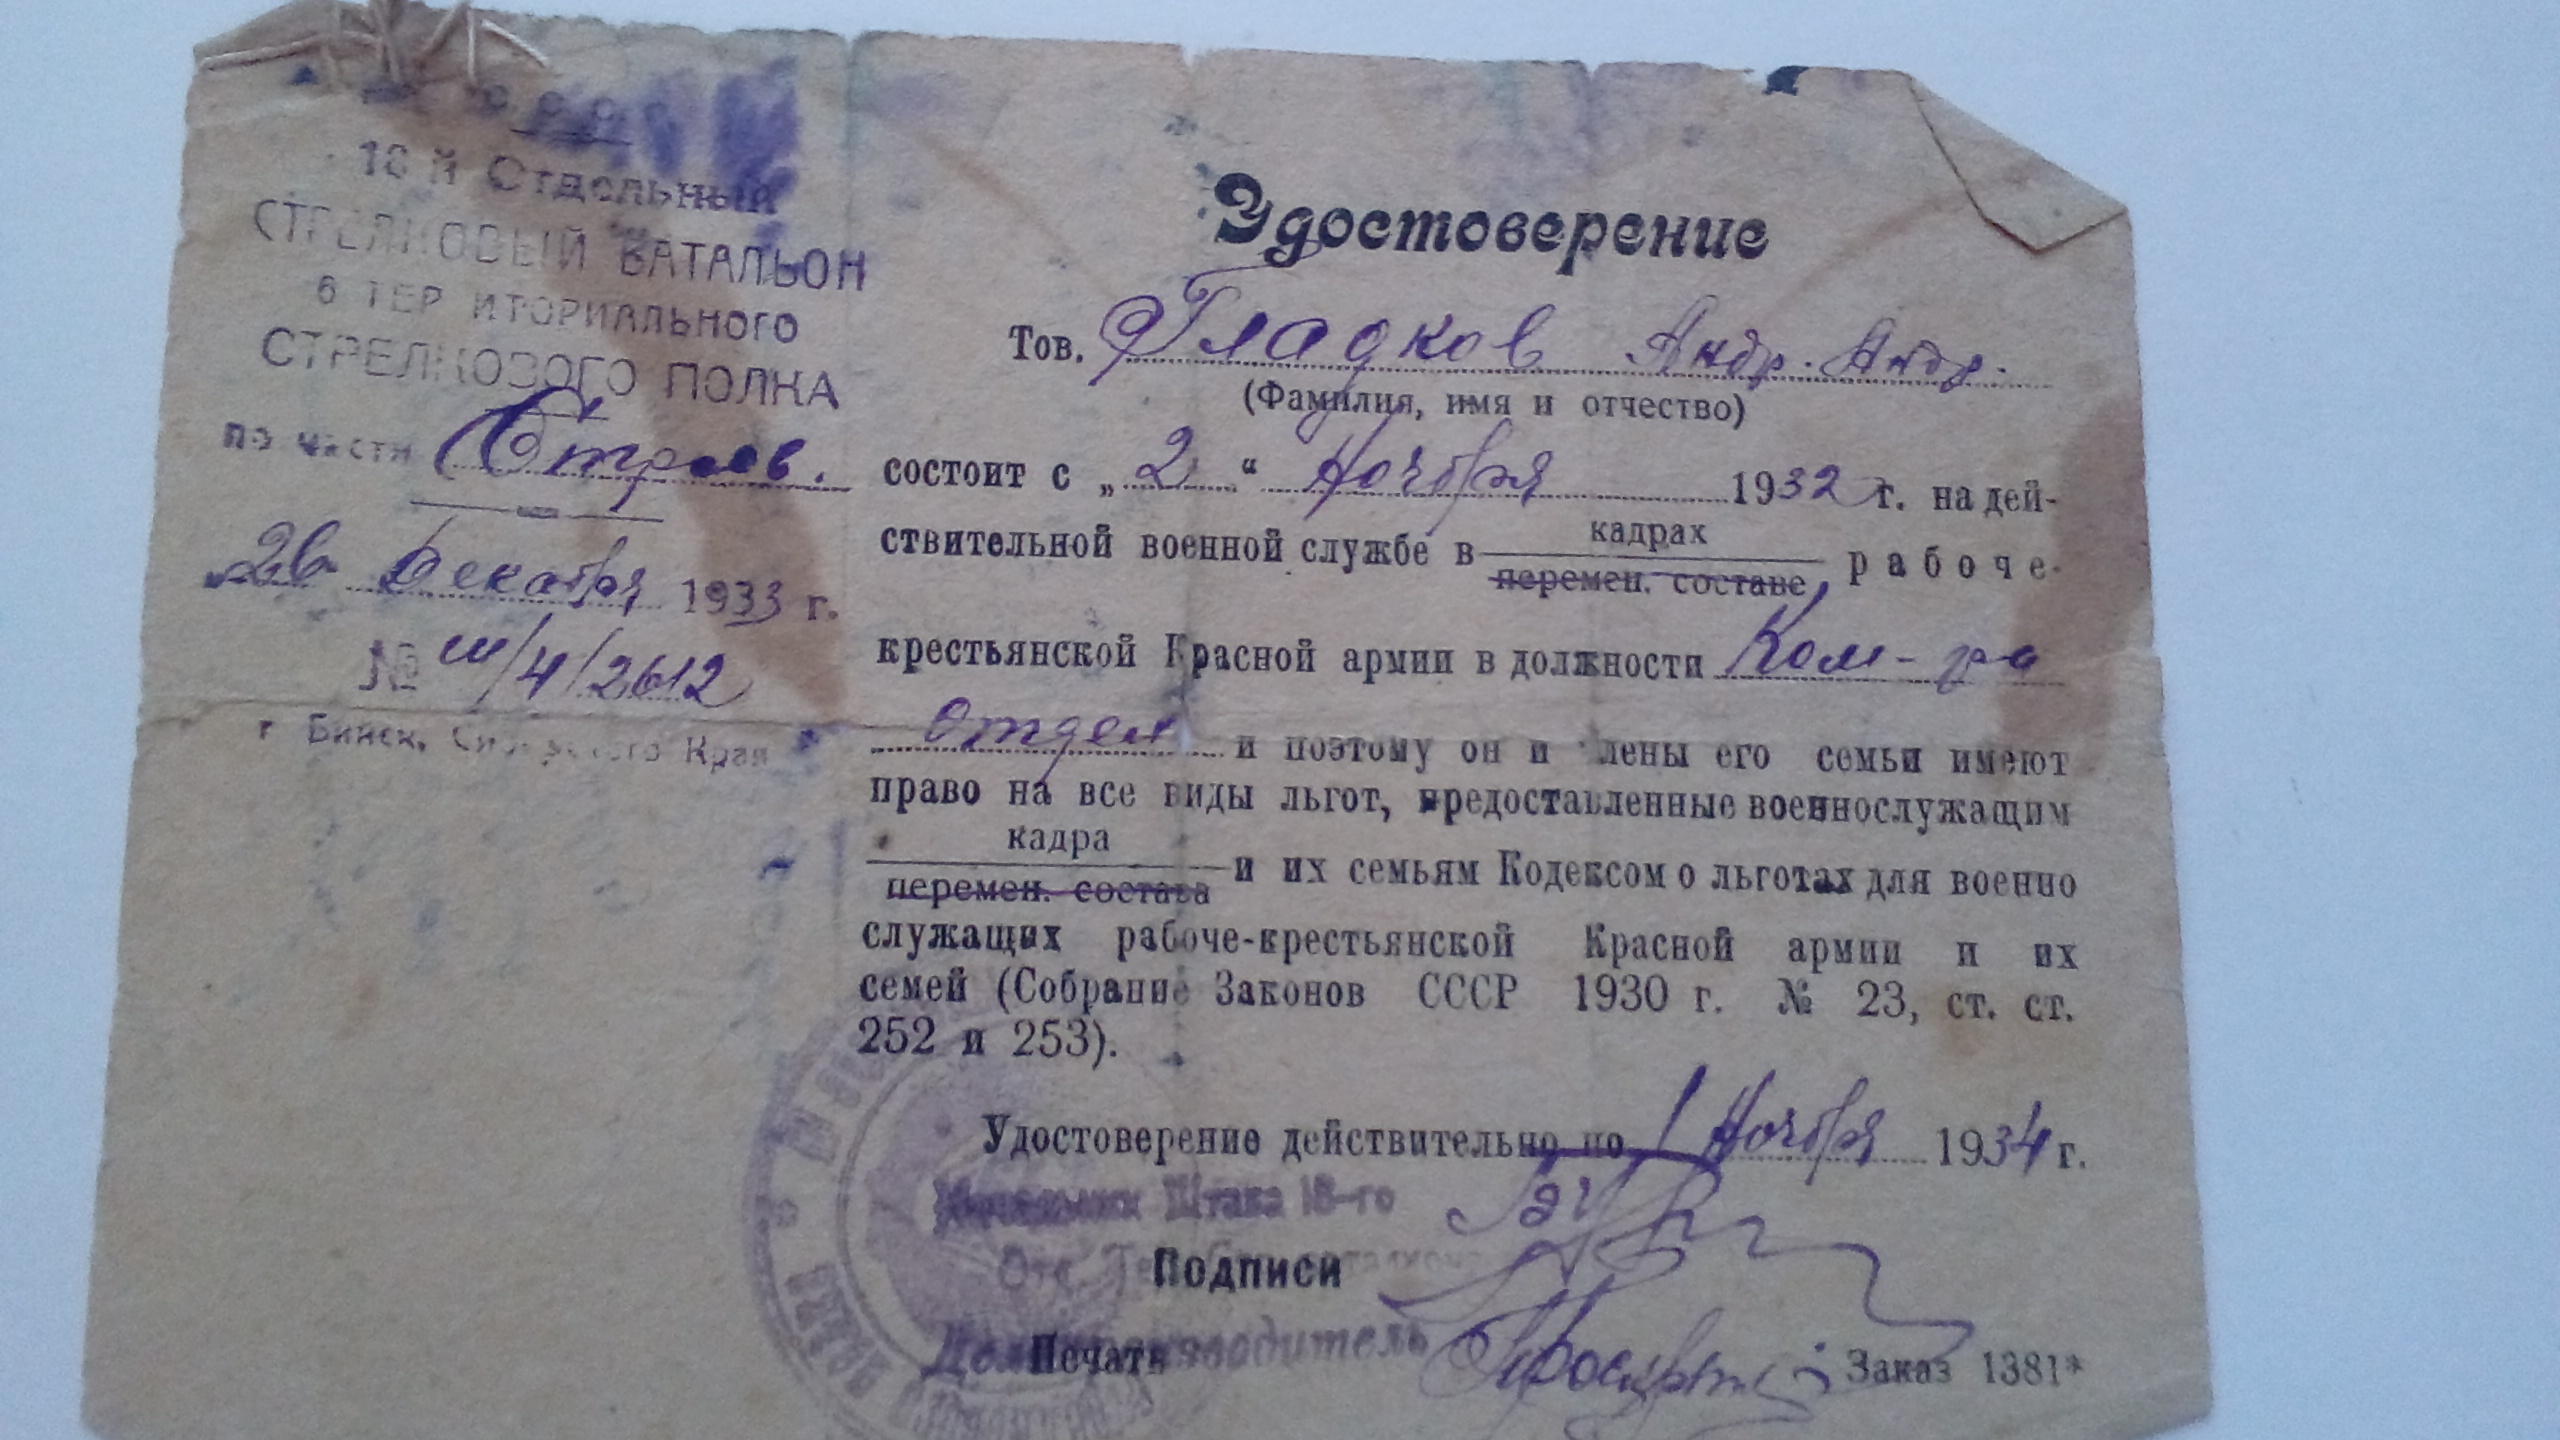 Отдельный
СТРЕЛКОВЫЙ БАТАЛЬОН
6 ТЕР ИТОРИАЛЬНОГО
СТРЕЛКОВОГО ПОЛКА
по части Строев.
„26“ Декабря 1933 г.
№ III/4/2612
г Бийск, Сибирского Края
Удостоверение
Тов. Гладков Андр. Андр.
(Фамилия, имя и отчество)
состоит с „2“ Ноября 1932 г. на дей-
ствительной военной службе в кадрах
перемен. составе рабоче-
крестьянской Красной армии в должности Ком-ра
отдел и поэтому он и члены его семьи имеют
право на все виды льгот, предоставленные военнослужащим
кадра
перемен. состава и их семьям Кодексом о льготах для военно
служащих рабоче-крестьянской Красной армии и их
семей (Собрание Законов СССР 1930 г. № 23, ст. ст.
252 и 253).
Удостоверение действительно по 1 Ноября 1934 г.
Начальник Штаба 18-го
Отд.
Подписи
Делопроизводитель
Печать
Заказ 1381*